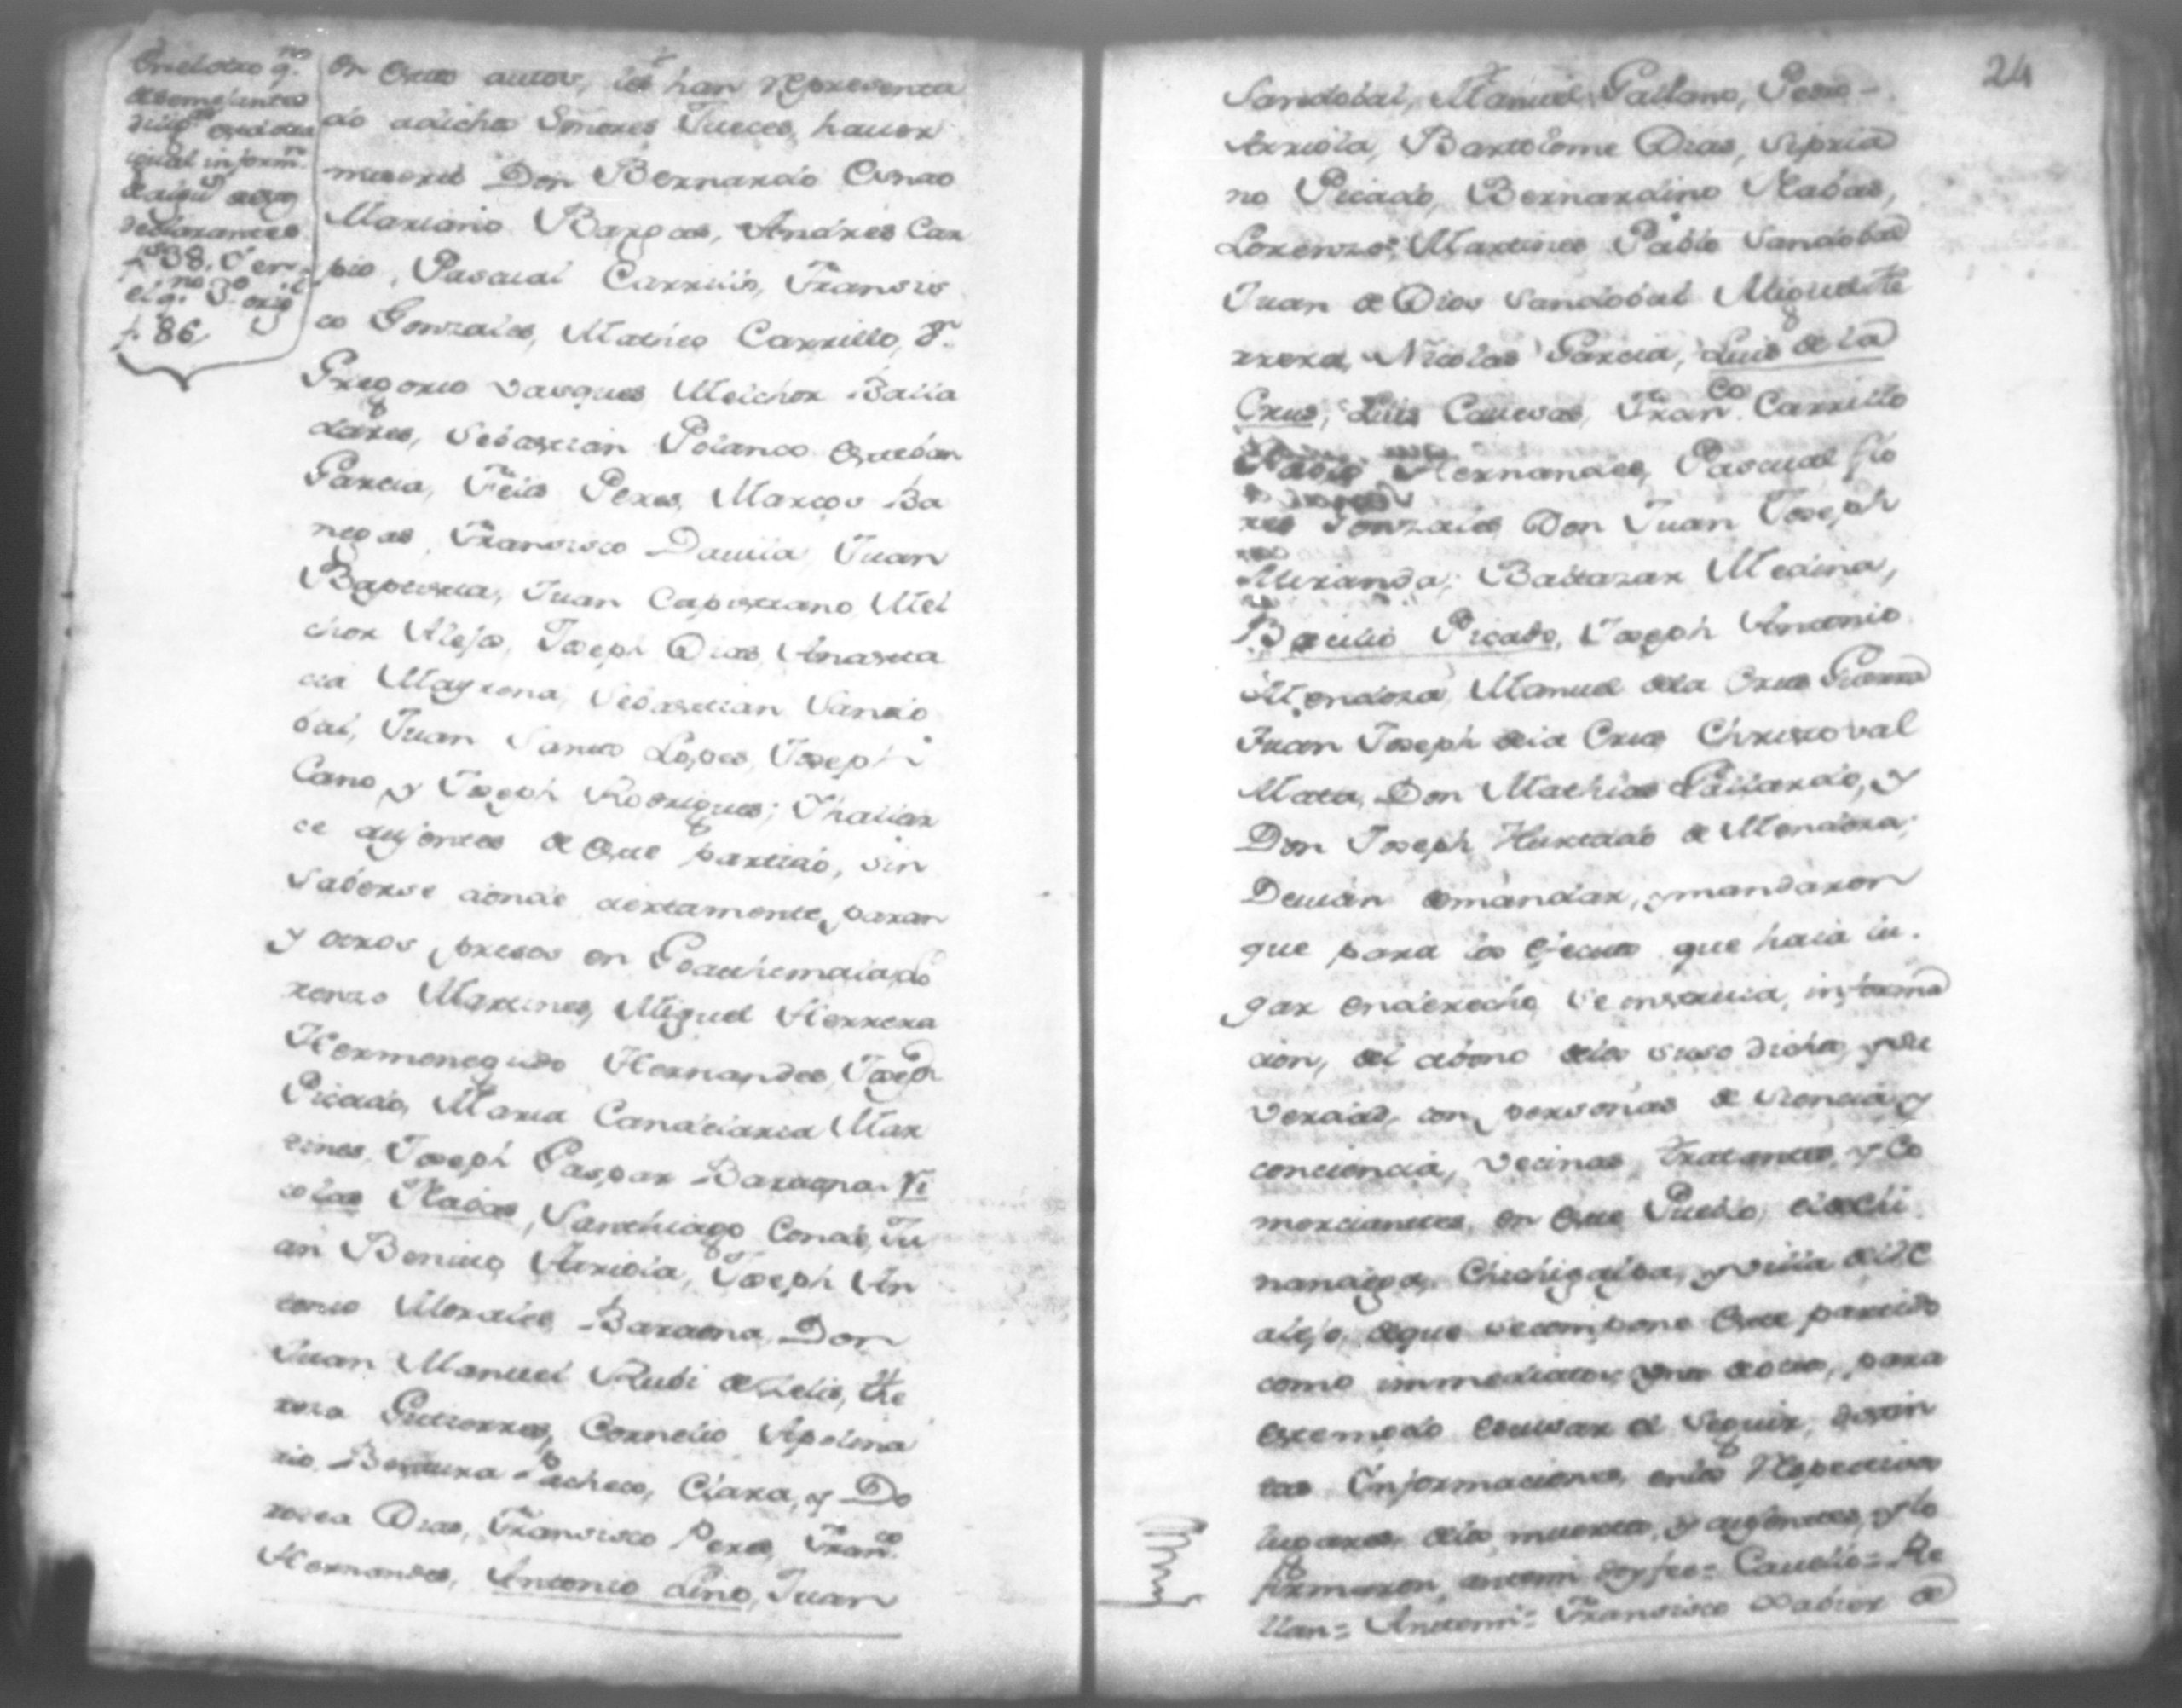 24
En el otro q.no
de semejantes
dilig.s
igual inform.n
declarantes
f 38.
f. 86.
en estos autos, les han representa
do a dichos Señores Jueces, haver
muerto Don Bernardo Cano
Mariano Bargas, Andres Car
pio, Pascual Carrillo, Fransis
co Gonzales, Matheo Carrillo,
Gregorio Vasques Melchor Balla
dares, Sebastian Polanco Esteban
Garcia, Felis Peres, Marcos Ba
negas, Fransisco Davila Juan
Baptista, Juan Capistrano Mel
chor Alejo, Joseph Dias, Anasta
cia Mayrena, Sebastian Sando
bal, Juan Santos Lopes, Joseph
Cano, y Joseph Rodrigues; I hallar
ce ausentes de este partido, sin
saberse donde ciertamente paran
y otros presos en Goathemala, Lo
renzo Martines, Miguel Herrera
Hermenegildo Hernandes, Joseph
Picado, Maria Candelaria Mar
tines, Joseph Gaspar Baraona Ni
colas Nabas, Santhiago Conde, Ju
an Benito Arriola, Joseph An
tonio Morales Baraona, Don
Juan Manuel Rubi de Zelis, The
resa Gutierres, Cornelio Apolina
rio, Bentura Pacheco, Clara, y Do
rotea Dias, Fransisco Peres, Fran.co
Hernandes, Antonio Lino, Juan
Sandobal, Manuel Galeano, Pedro
Arriola, Bartolome Dias, Sipria
no Picado, Bernardino Nabas,
Lorenzo Martines Pablo Sandobal
Juan de Dios Sandobal Miguel He
rrera, Nicolas Garcia, Luis de la
Crus, Luis Cuevas, Fran.co Carrillo
Hernandes, Pascual flo
res Gonzales Don Juan Joseph
Miranda; Baltazar Medina,
Basilio Picado, Joseph Antonio
Mendoza Manuel de la Crus Guerra
Juan Joseph de la Crus Christoval
Mata, Don Mathias Gallardo, y
Don Joseph Hurtado de Mendoza;
Devian de mandar, y mandaron
que para los efectos que haia lu-
gar en derecho se instruia informa
cion, del abono de los suso dichos, y su
verdad, con personas de siencia y
conciencia, vecinas, tratantes, y co
merciantes, en este Pueblo, el de Chi
nandega, Chichigalpa, y villa del Re
alejo, de que se compone este partido
como inmediatos unos de otros, para
este modo escusar el seguir, distin
tas Informaciones, en los respectivos
lugares, de los muertos, y ausentes, y lo
firmaron, ante mi doy fee = Cavello = Re
llan = Ante mi = Fransisco Xabier de